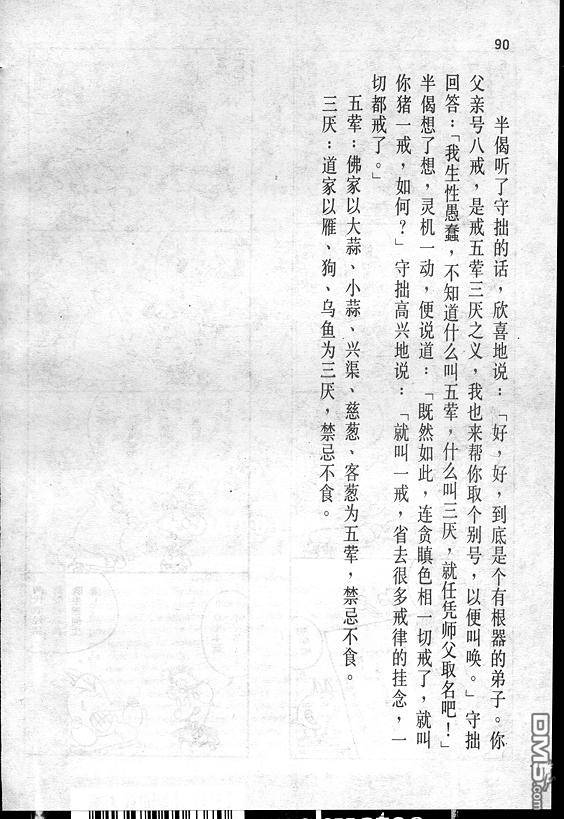 90
半偈听了守拙的话，欣喜地说：「好，好，到底是个有根器的弟子。你
父亲号八戒，是戒五荤三厌之义，我也来帮你取个别号，以便叫唤。」守拙
回答：「我生性愚蠢，不知道什么叫五荤，什么叫三厌，就任凭师父取名吧！」
半偈想了想，灵机一动，便说道：「既然如此，连贪瞋色相一切戒了，就叫
你猪一戒，如何？」守拙高兴地说：「就叫一戒，省去很多戒律的挂念，一
切都戒了。」
五荤：佛家以大蒜、小蒜、兴渠、慈葱、客葱为五荤，禁忌不食。
三厌：道家以雁、狗、乌鱼为三厌，禁忌不食。
DM5.com